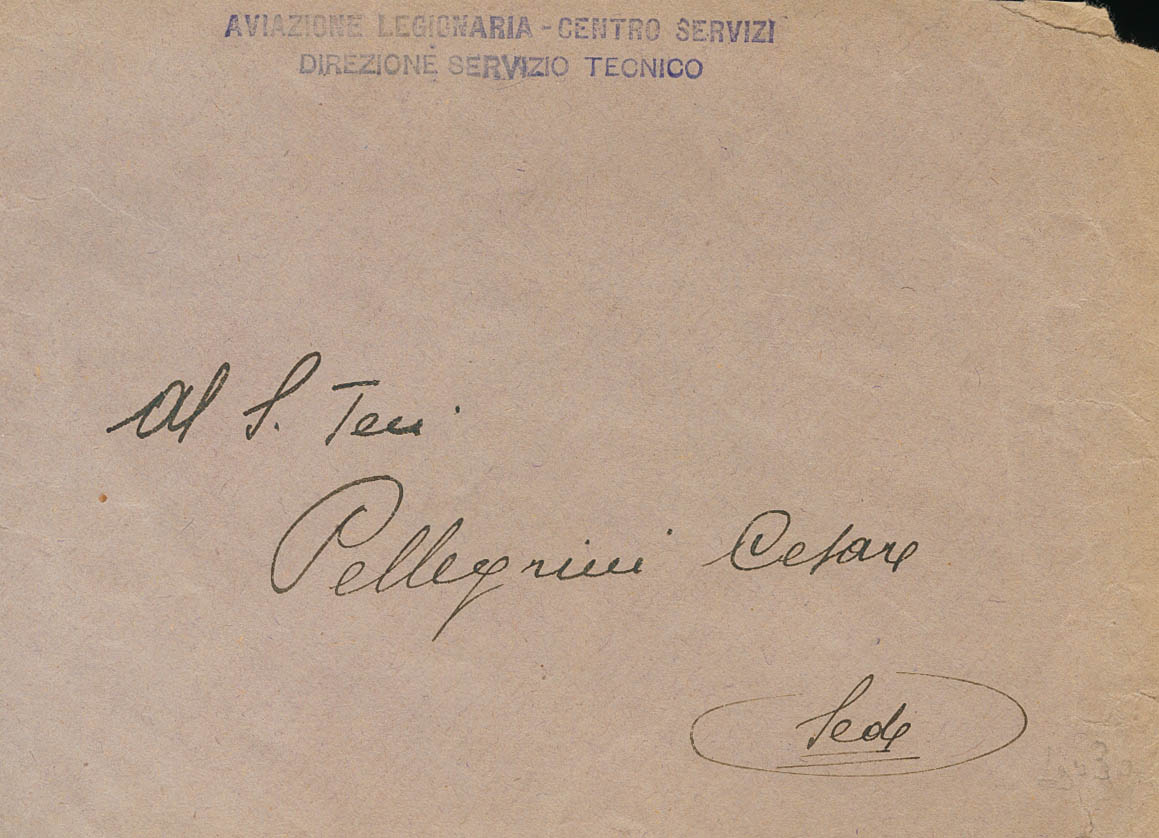 AVIAZIONE LEGIONARIA - CENTRO SERVIZI
DIREZIONE SERVIZIO TECNICO
Al S. Ten.
Pellegrini Cesare
Sede